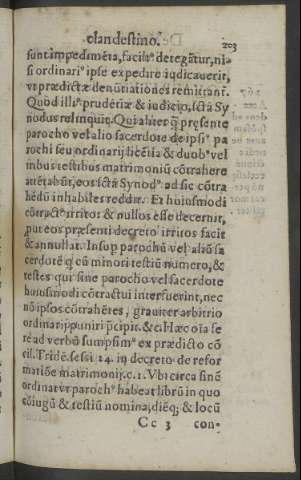 clandestino. 203
sunt impedimẽta, facilꝰ detegãtur, ni-
si ordinariꝰ ipse expedire iudicauerit,
vt prædictæ denũtiationes remittantʳ.
Quòd illiꝰ prudẽtiæ & iudicio, sctã Sy
nodus relinquit. Qui aliter q̃ presente
parocho vel alio sacerdote de ipsiꝰ pa
rochi seu ordinarij licẽtia & duobꝰ vel
tribus testibus matrimoniũ cõtrahere
attẽtabũt, eos sctã Synodꝰ ad sic cõtra
hẽdũ inhabiles reddit. Et huiusmodi
cõtractꝰ irritos & nullos esse decernit,
put eos præsenti decreto irritos facit
& annullat. Insup parochũ vel aliũ sa
cerdotẽ q̃ cũ minori testiũ numero, &
testes qui sine parocho vel sacerdote
huiusmodi cõtractui interfuerint, nec
nõ ipsos cõtrahẽtes, grauiter arbitrio
ordinarij puniri p̃cipit. &c. Hæc oĩa se
rè ad verbũ sumpsimꝰ ex prædicto cõ
cil. Tridẽ. sessi 24. in decreto de refor
matiõe matrimonij. c. 1. Vbi circa finẽ
ordinatur parochꝰ habeat librũ in quo
cõiugũ & testiũ nomina, diẽq; & locũ
Cc 3 con-